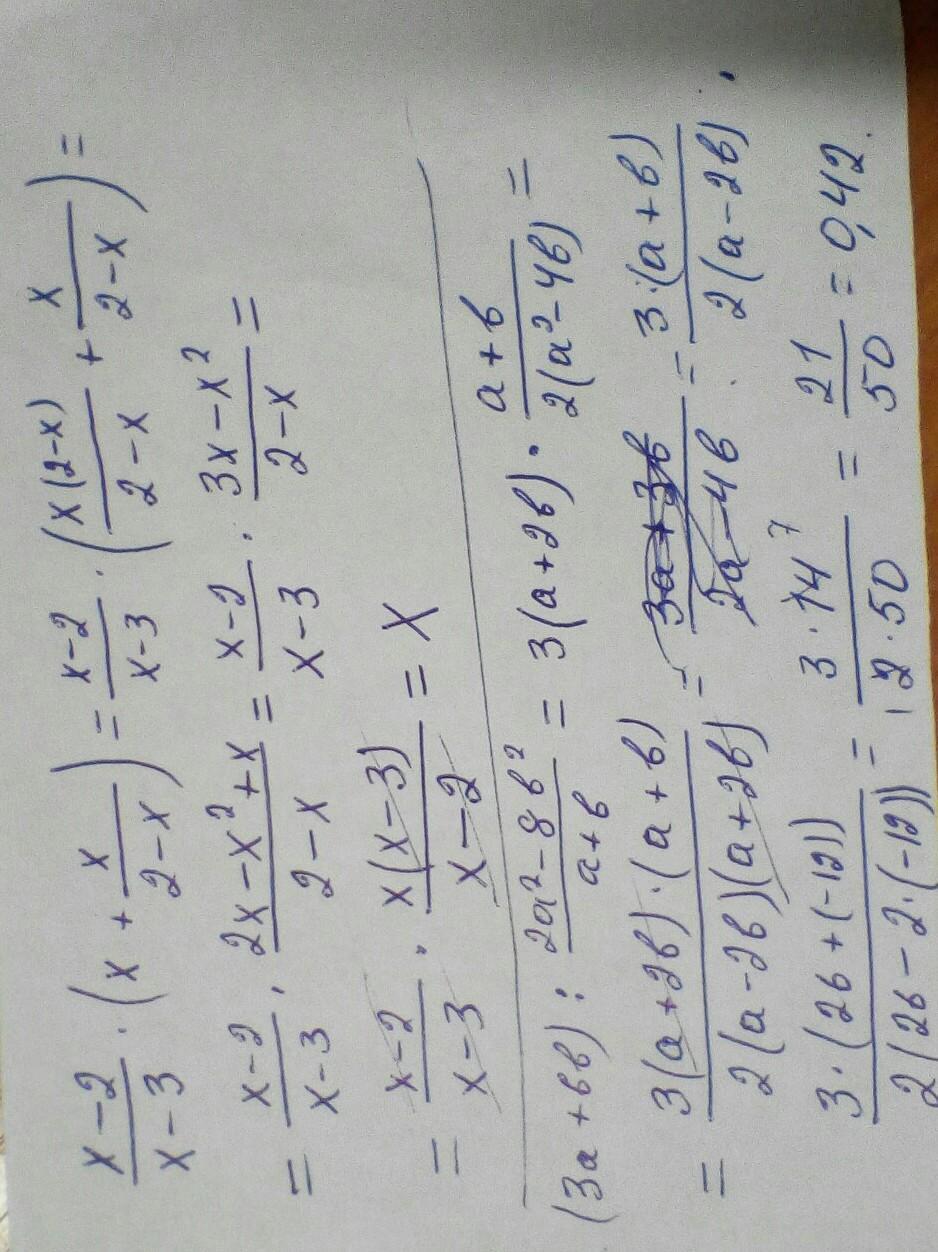 x-2/x-3 · (x + x/2-x) = x-2/x-3 · (x(2-x)/2-x + x/2-x) =
= x-2/x-3 · 2x-x²+x/2-x = x-2/x-3 · 3x-x²/2-x =
= x-2/x-3 · x(x-3)/x-2 = x
(3a+6в) : 2a²-8в²/a+в = 3(a+2в) · a+в/2(a²-4в) =
= 3(a+2в)·(a+в)/2(a-2в)(a+2в) = 3a+3в/2a-4в = 3·(a+в)/2(a-2в).
3·(26+(-12))/2(26-2·(-12)) = 3·14 7/2·50 = 21/50 = 0,42.